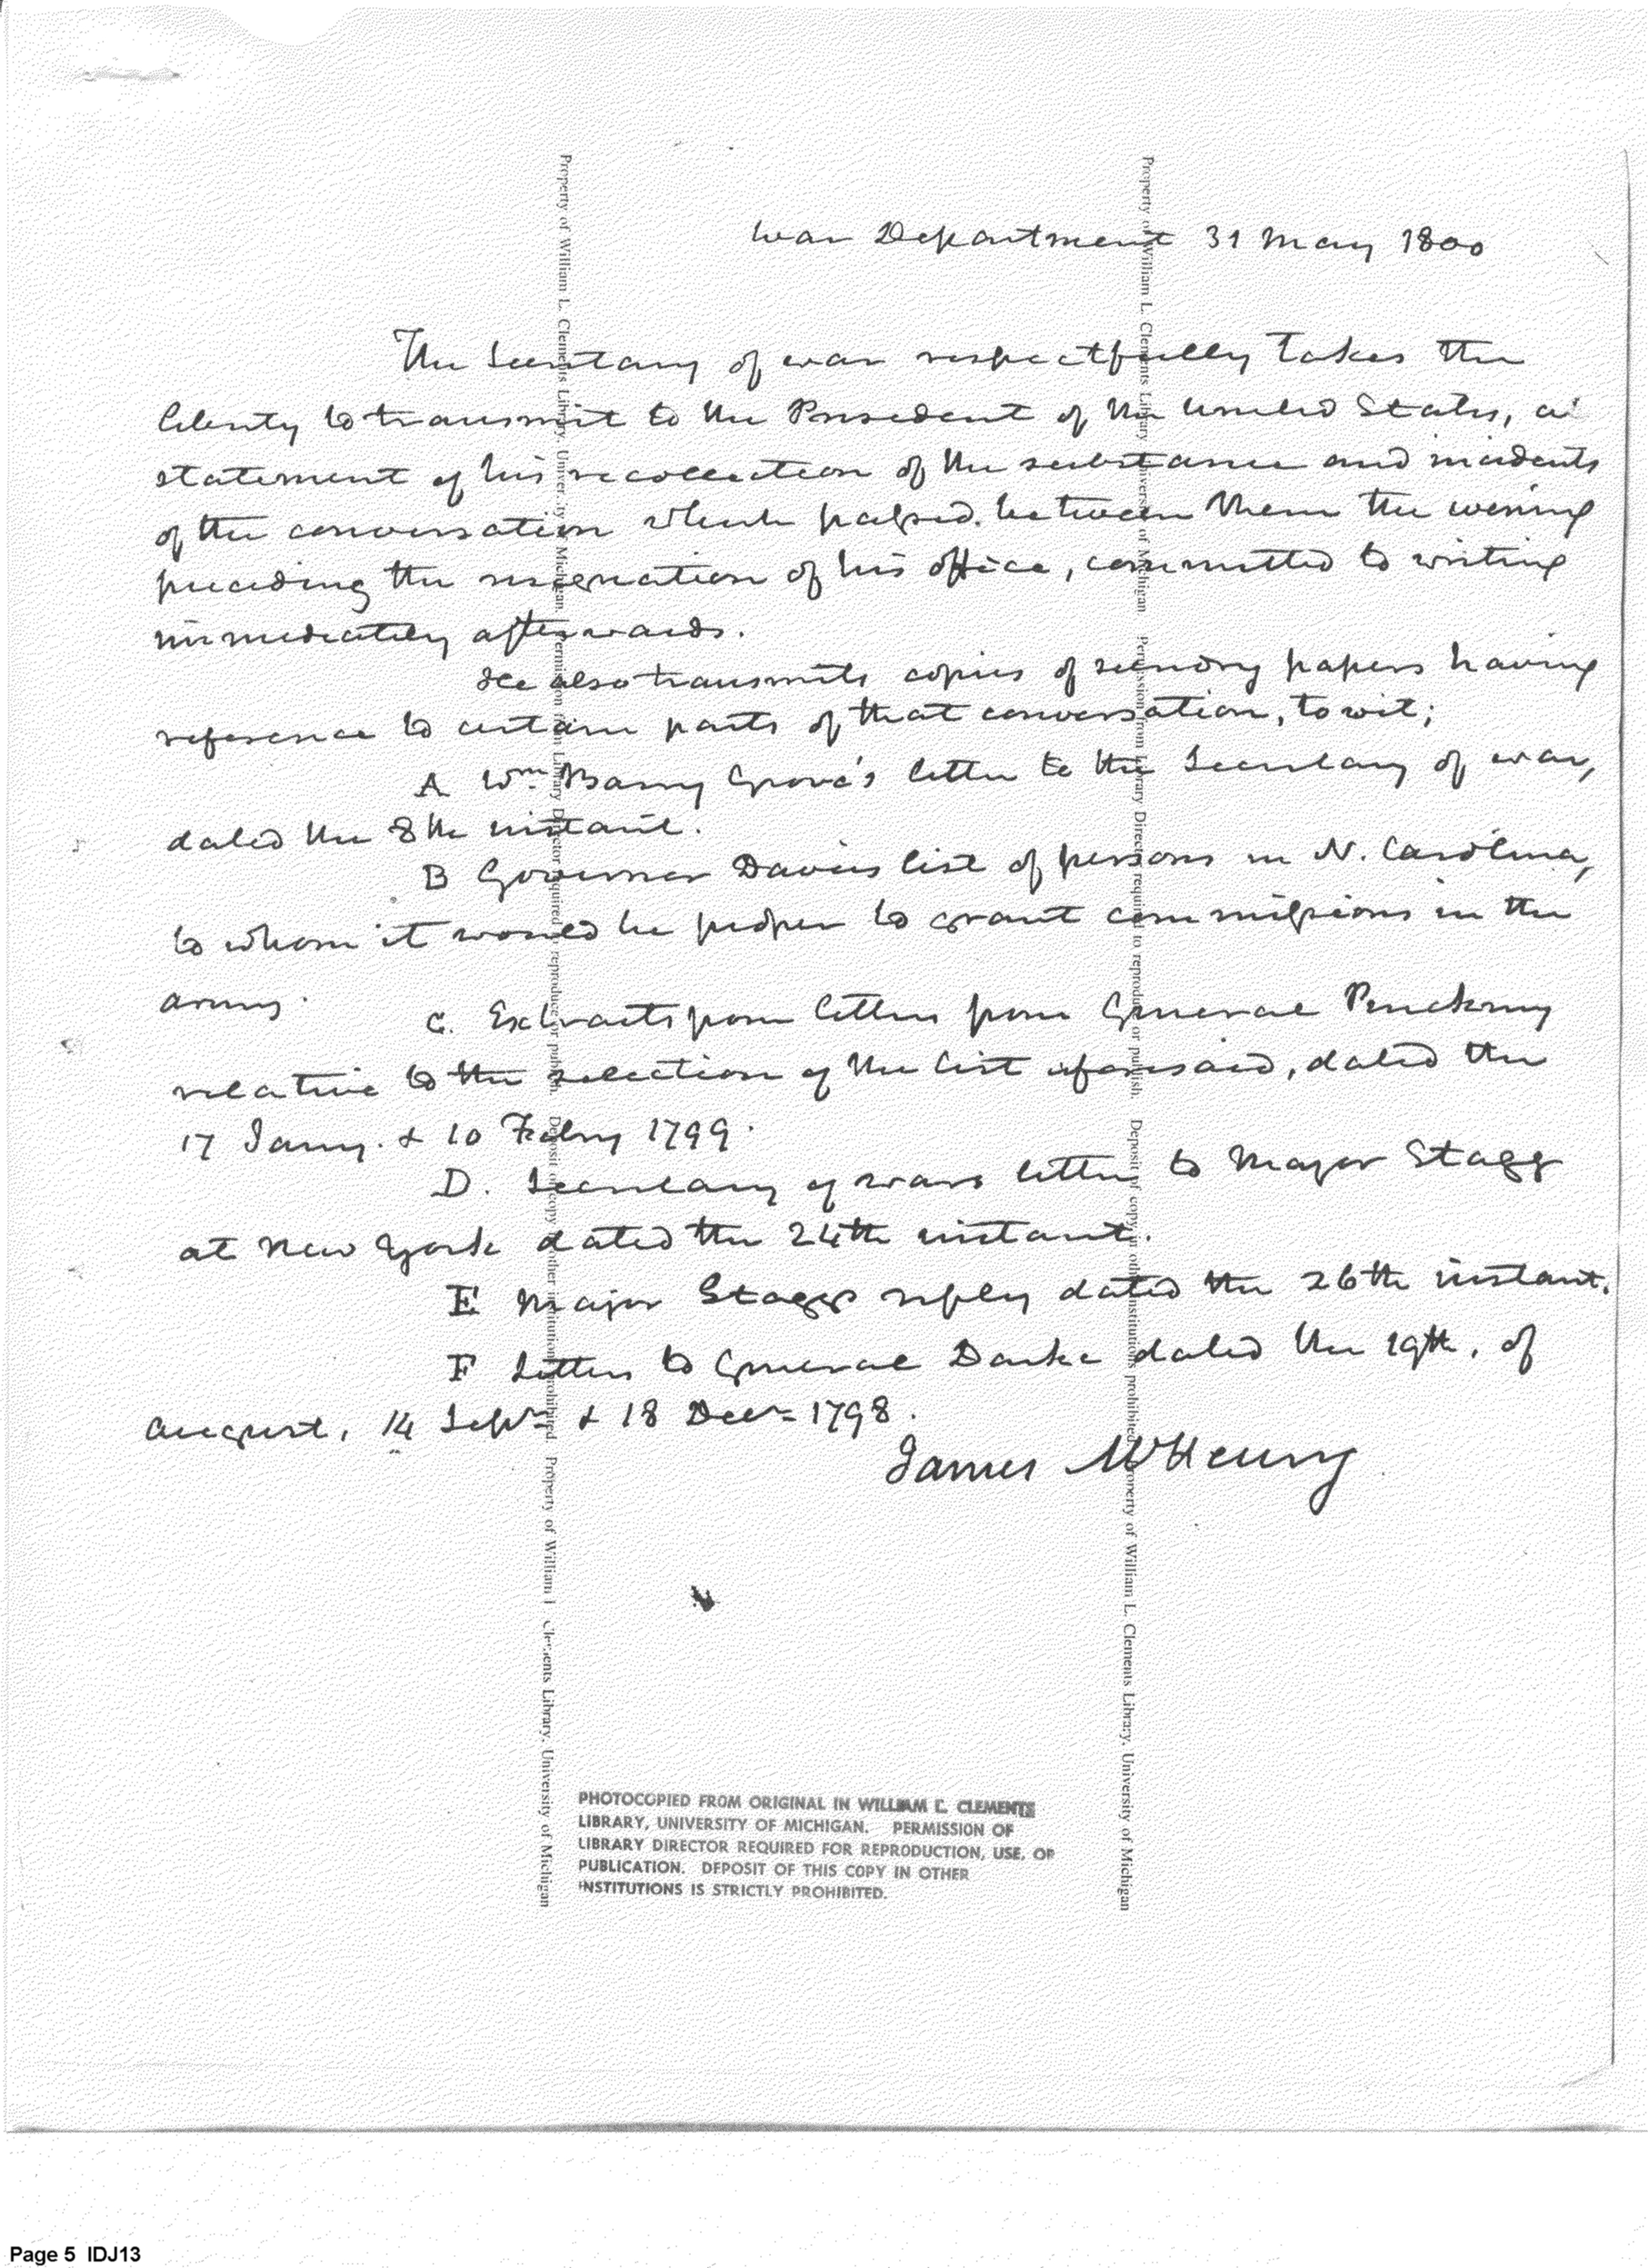 War Department 31 May 1800
The Secretary of war respectfully takes the
liberty to transmit to the President of the United States, a
statement of his recollection of the substance and incidents
of the conversation which passed between them the evening
preceding the resignation of his office, committed to writing
immediately afterwards.
He also transmits copies of sundry papers having
reference to certain parts of that conversation, to wit;
A Wm Barry Grove's letter to the Secretary of war,
dated the 8th instant.
B Governor Davies list of persons in N. Carolina,
to whom it would be proper to grant commissions in the
army.
C. Extracts from letters from General Pinckney
relative to the selection of the list aforesaid, dated the
17 Jany. & 10 Febry 1799.
D. Secretary of wars letter to Major Stagg
at New York dated the 24th instant.
E Major Staggs reply dated the 26th instant.
F Letters to General Darke dated the 19th, of
August, 14 Sepr & 18 Decr 1798.
James McHenry
Property of William L. Clements Library, University of Michigan. Permission from Library Director required to reproduce or publish. Deposit of copy in other institutions prohibited. Property of William L. Clements Library, University of Michigan
Property of William L. Clements Library, University of Michigan. Permission from Library Director required to reproduce or publish. Deposit of copy in other institutions prohibited. Property of William L. Clements Library, University of Michigan
PHOTOCOPIED FROM ORIGINAL IN WILLIAM L. CLEMENTS
LIBRARY, UNIVERSITY OF MICHIGAN. PERMISSION OF
LIBRARY DIRECTOR REQUIRED FOR REPRODUCTION, USE, OR
PUBLICATION. DEPOSIT OF THIS COPY IN OTHER
INSTITUTIONS IS STRICTLY PROHIBITED.
Page 5 IDJ13